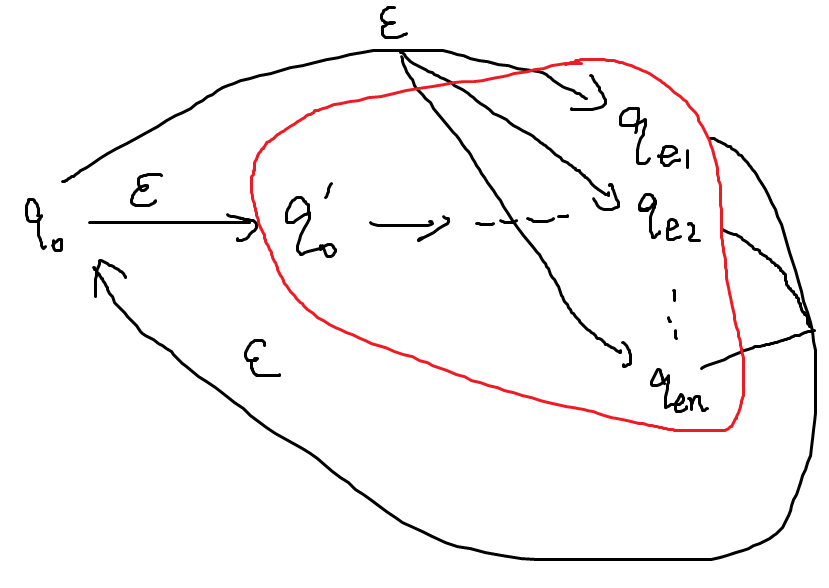 ε
ε
q₀
q₀′
q_e1
q_e2
⋮
q_en
ε